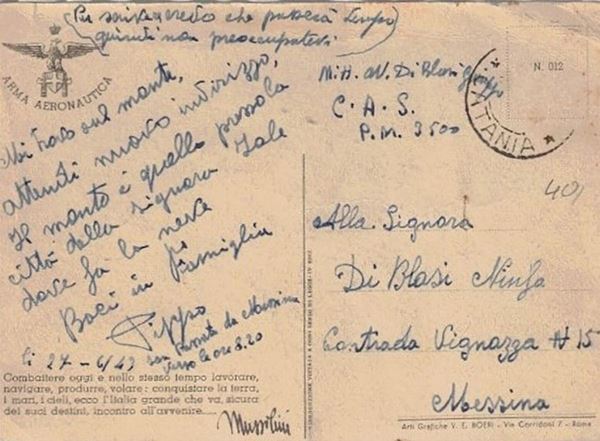 Per scrivervelo che passerà tempo
quindi non preoccupatevi
ARMA AERONAUTICA
Mi trovo sul monte,
attenti nuovo indirizzo,
Il monte è quella piccola
città della signora Iole
dove fa la neve
Baci in Famiglia
Pippo
li 27-4/43 son passato da Messina
verso le ore 8.20
Combattere oggi e nello stesso tempo lavorare,
navigare, produrre, volare: conquistare la terra,
i mari, i cieli, ecco l'Italia grande che va, sicura
dei suoi destini, incontro all'avvenire.
Mussolini
M.A.V. Di Blasi
C. A. S.
P. M. 3500
N. 012
TANIA
401
Alla Signora
Di Blasi Ninfa
Contrada Vignazza N 15
Messina
Arti Grafiche V. E. BOERI - Via Corridoni 7 - Roma